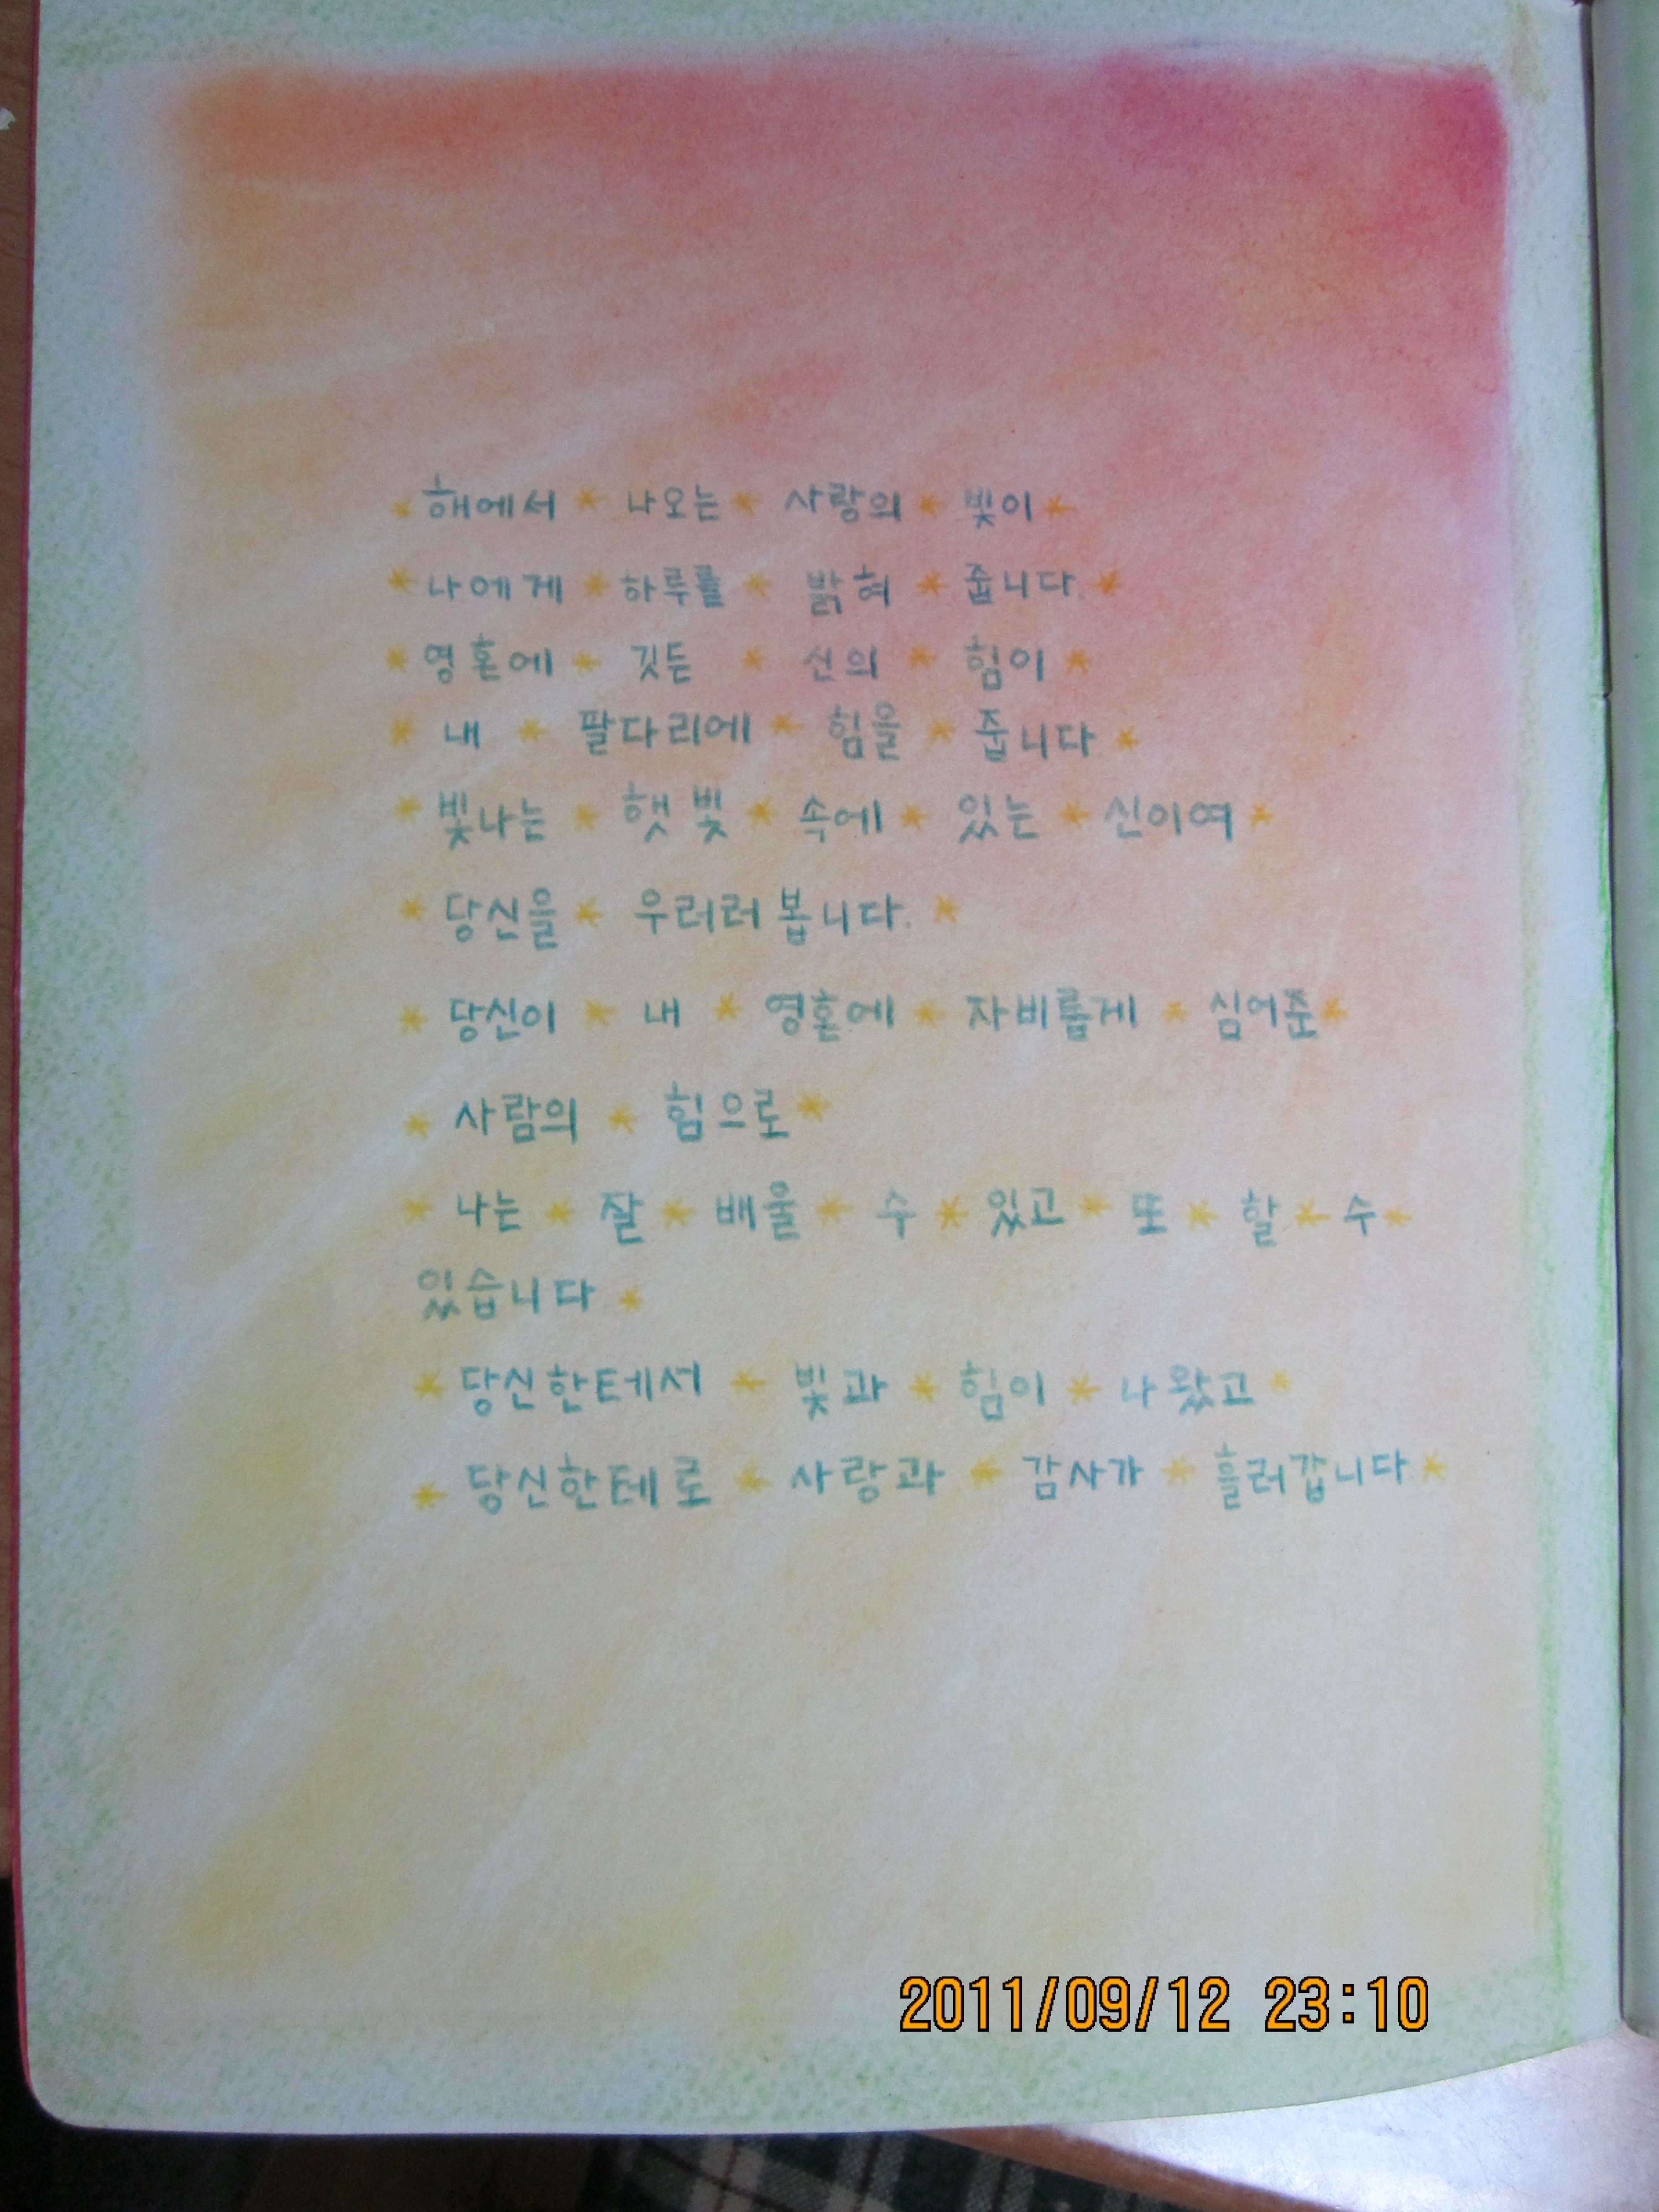 *해에서 * 나오는 * 사랑의 * 빛이 *
*나에게 * 하루를 * 밝혀 * 줍니다. *
*영혼에 * 깃든 * 신의 * 힘이 *
* 내 * 팔다리에 * 힘을 * 줍니다 *
* 빛나는 * 햇빛 * 속에 * 있는 * 신이여 *
* 당신을 * 우러러봅니다. *
* 당신이 * 내 * 영혼에 * 자비롭게 * 심어준 *
* 사람의 * 힘으로 *
* 나는 * 잘 * 배울 * 수 * 있고 * 또 * 할 * 수 *
있습니다 *
* 당신한테서 * 빛과 * 힘이 * 나왔고 *
* 당신한테로 * 사랑과 * 감사가 * 흘러갑니다. *
2011/09/12 23:10